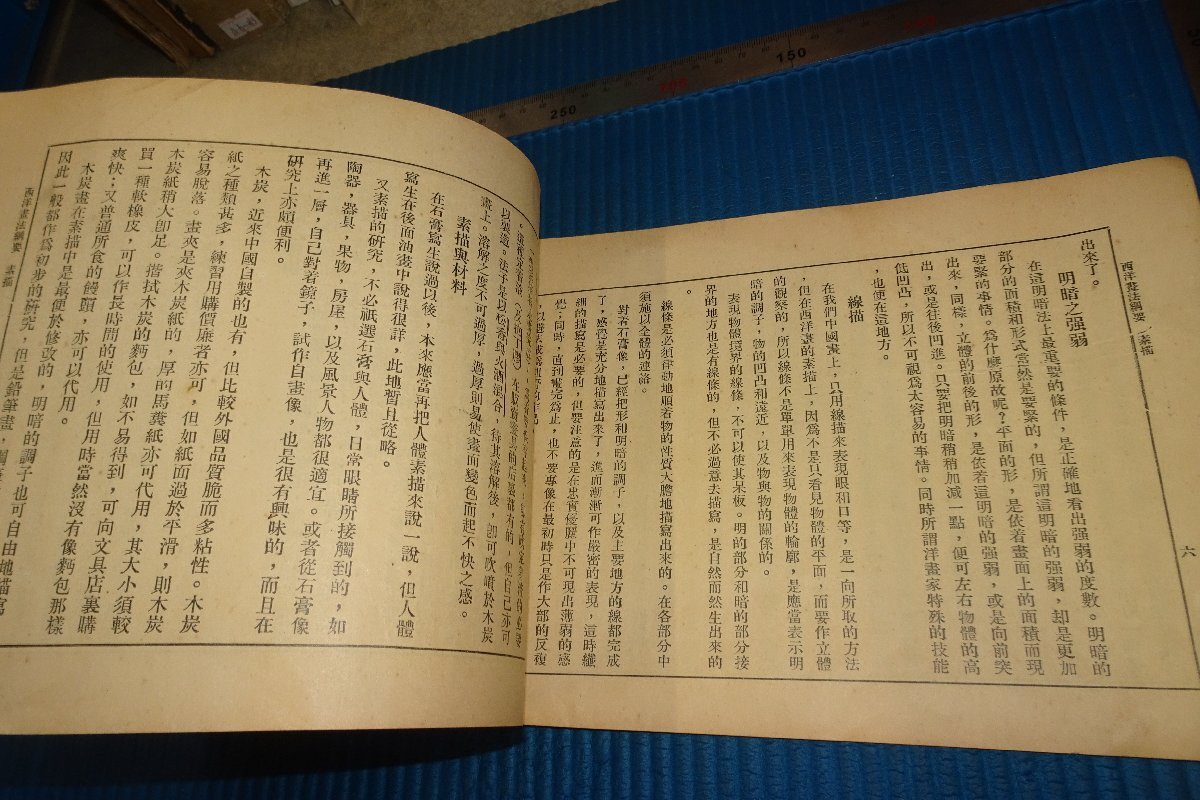 西洋畫法綱要 素描
六
出來了。
明暗之强弱
在這明暗法上最重要的條件，是正確地看出强弱的度數。明暗的
部分的面積和形式當然是要緊的，但所謂這明暗的强弱，却是更加
要緊的事情。爲什麽原故呢？平面的形，是依着畫面上的面積而現
出來，同樣，立體的前後的形，是依着這明暗的强弱，或是向前突
出，或是往後凹進。只要把明暗稍稍加減一點，便可左右物體的高
低凹凸，所以不可視爲太容易的事情。同時所謂洋畫家特殊的技能
，也便在這地方。
線描
在我們中國畫上，只用線描來表現眼和口等，是一向所取的方法
，但在西洋畫的素描上，因爲不是只看見物體的平面，而要作立體
的觀察的，所以線條不是單單用來表現物體的輪廓，是應當表示明
暗的調子，物的凹凸和遠近，以及物與物的關係的。
表現物體境界的線條，不可以使其呆板。明的部分和暗的部分接
界的地方也是有線條的，但不必過意去描寫，是自然而然生出來的
。
線條是必須律動地順着物的性質大膽地描寫出來的。在各部分中
須施以全體的連絡。
對着石膏像，已經把形和明暗的調子，以及主要地方的線都完成
了，感覺是充分地描寫出來了，進而漸漸可作嚴密的表現，這時纖
細的描寫是必要的，但要注意的是在忠實優麗中不可現出薄弱的感
覺；同時，直到畫完為止，也不要專像在最初時只是作大部的反複
以製造。法子是以松香與火酒混合，待其溶解後，卽可吹噴於木炭
畫上。溶解之度不可過厚，過厚則易使畫面變色而起不快之感。
素描與材料
在石膏寫生說過以後，本來應當再把人體素描來說一說，但人體
寫生在後面油畫中說得很詳，此地暫且從略。
又素描的研究，不必祇選石膏與人體，日常眼睛所接觸到的，如
陶器，器具，果物，房屋，以及風景人物都很適宜。或者從石膏像
再進一層，自己對着鏡子，試作自畫像，也是很有興味的，而且在
研究上亦頗便利。
木炭，近來中國自製的也有，但比較外國品質脆而多粘性。木炭
紙之種類甚多，練習用購價廉者亦可，但如紙面過於平滑，則木炭
容易脫落。畫夾是夾木炭紙的，厚的馬糞紙亦可代用，其大小須較
木炭紙稍大卽足。揩拭木炭的麪包，如不易得到，可向文具店裏購
買一種軟橡皮，可以作長時間的使用，但用時當然沒有像麪包那樣
爽快；又普通所食的饅頭，亦可以代用。
木炭畫在素描中是最便於修改的，明暗的調子也可自由地描寫
因此一般都作爲初步的研究，但是鉛筆畫，
西洋畫法綱要 素描
250
150